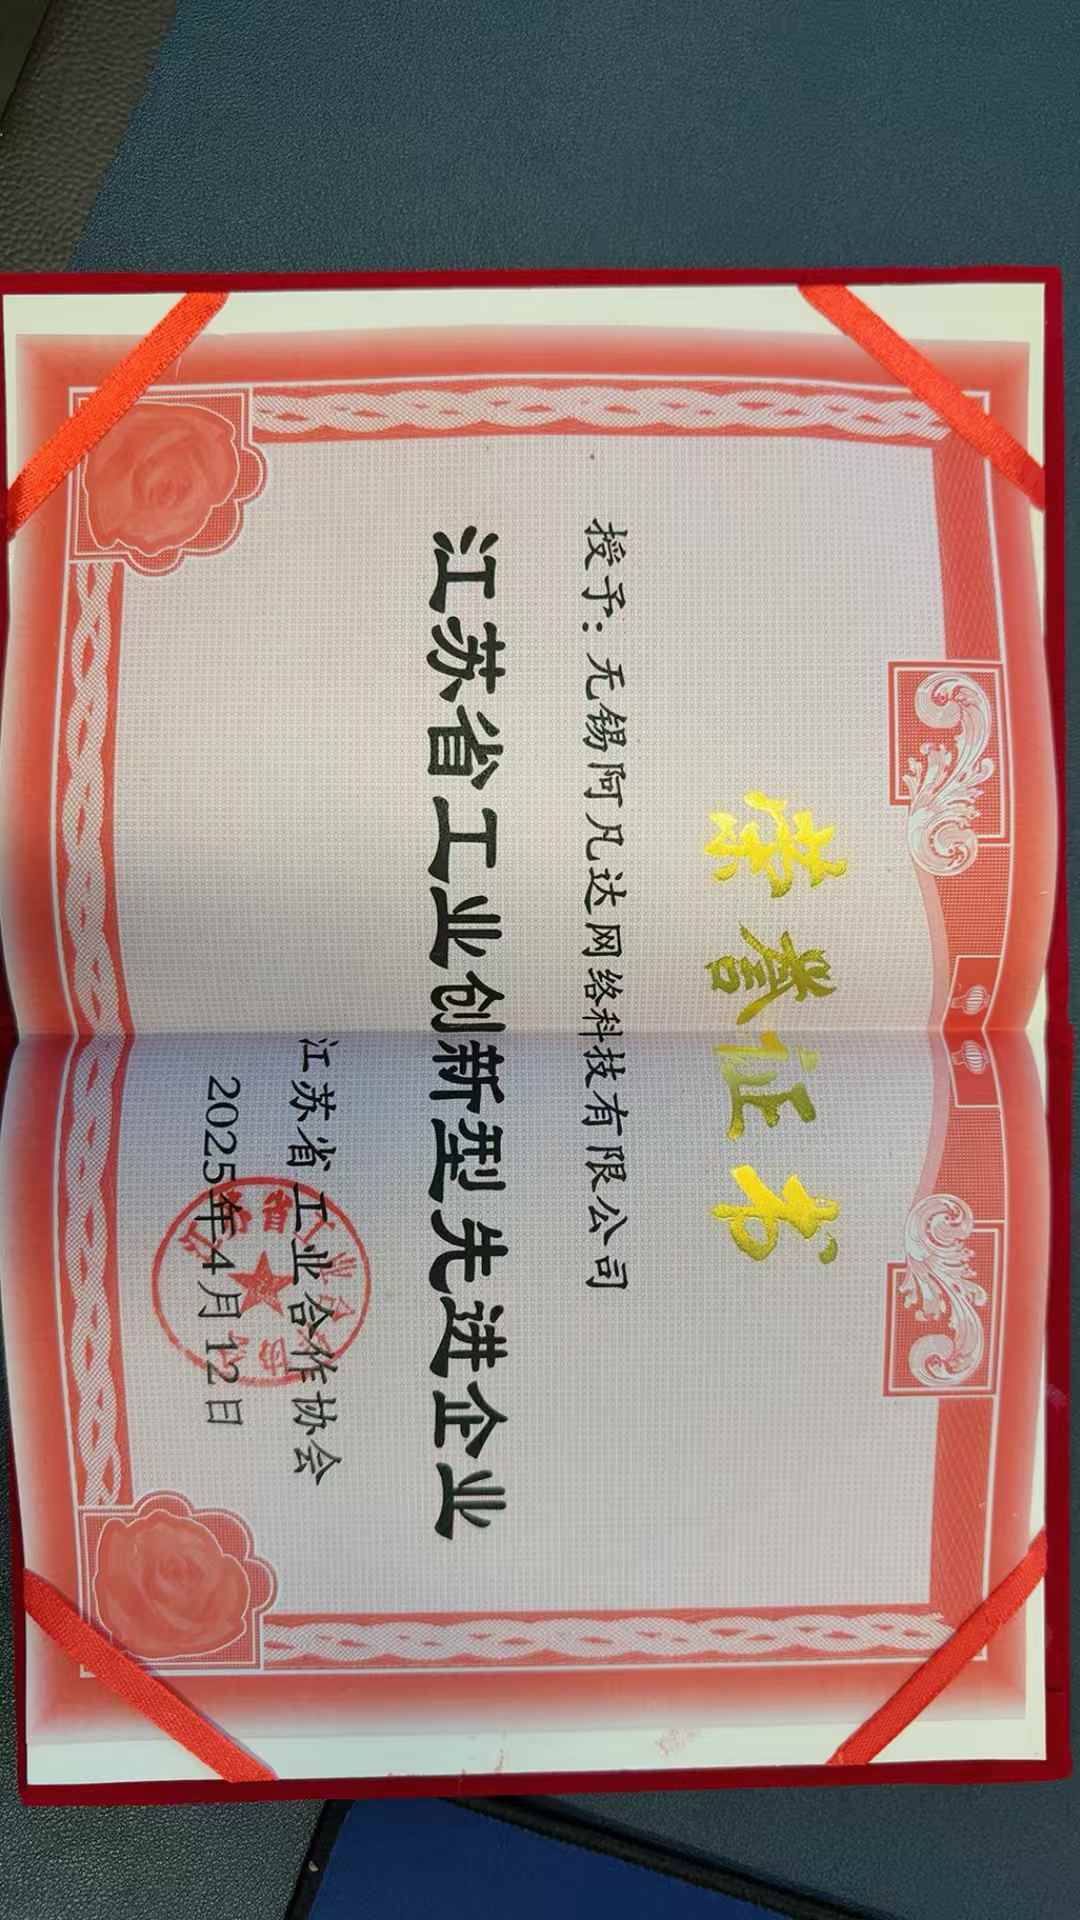 荣誉证书
授予：无锡阿凡达网络科技有限公司
江苏省工业创新型先进企业
江苏省工业合作协会
2025年4月12日